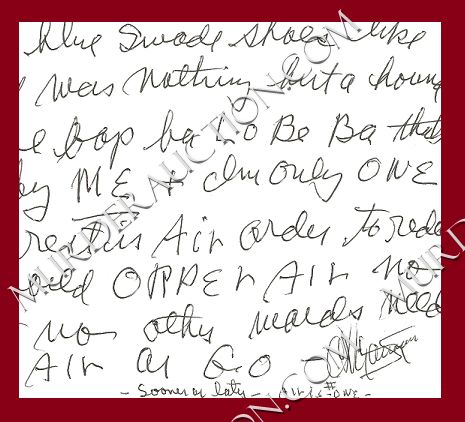 blue Swade shoes like
I was nothing but a houn
e bop ba Lo Be Ba that
by ME & Im only ONE
restris Air order to rede
OPPER AIR no
no other words need
AIR OR GO -
- Sooner or laty - Air is # ONE -
MURDERAUCTION.COM